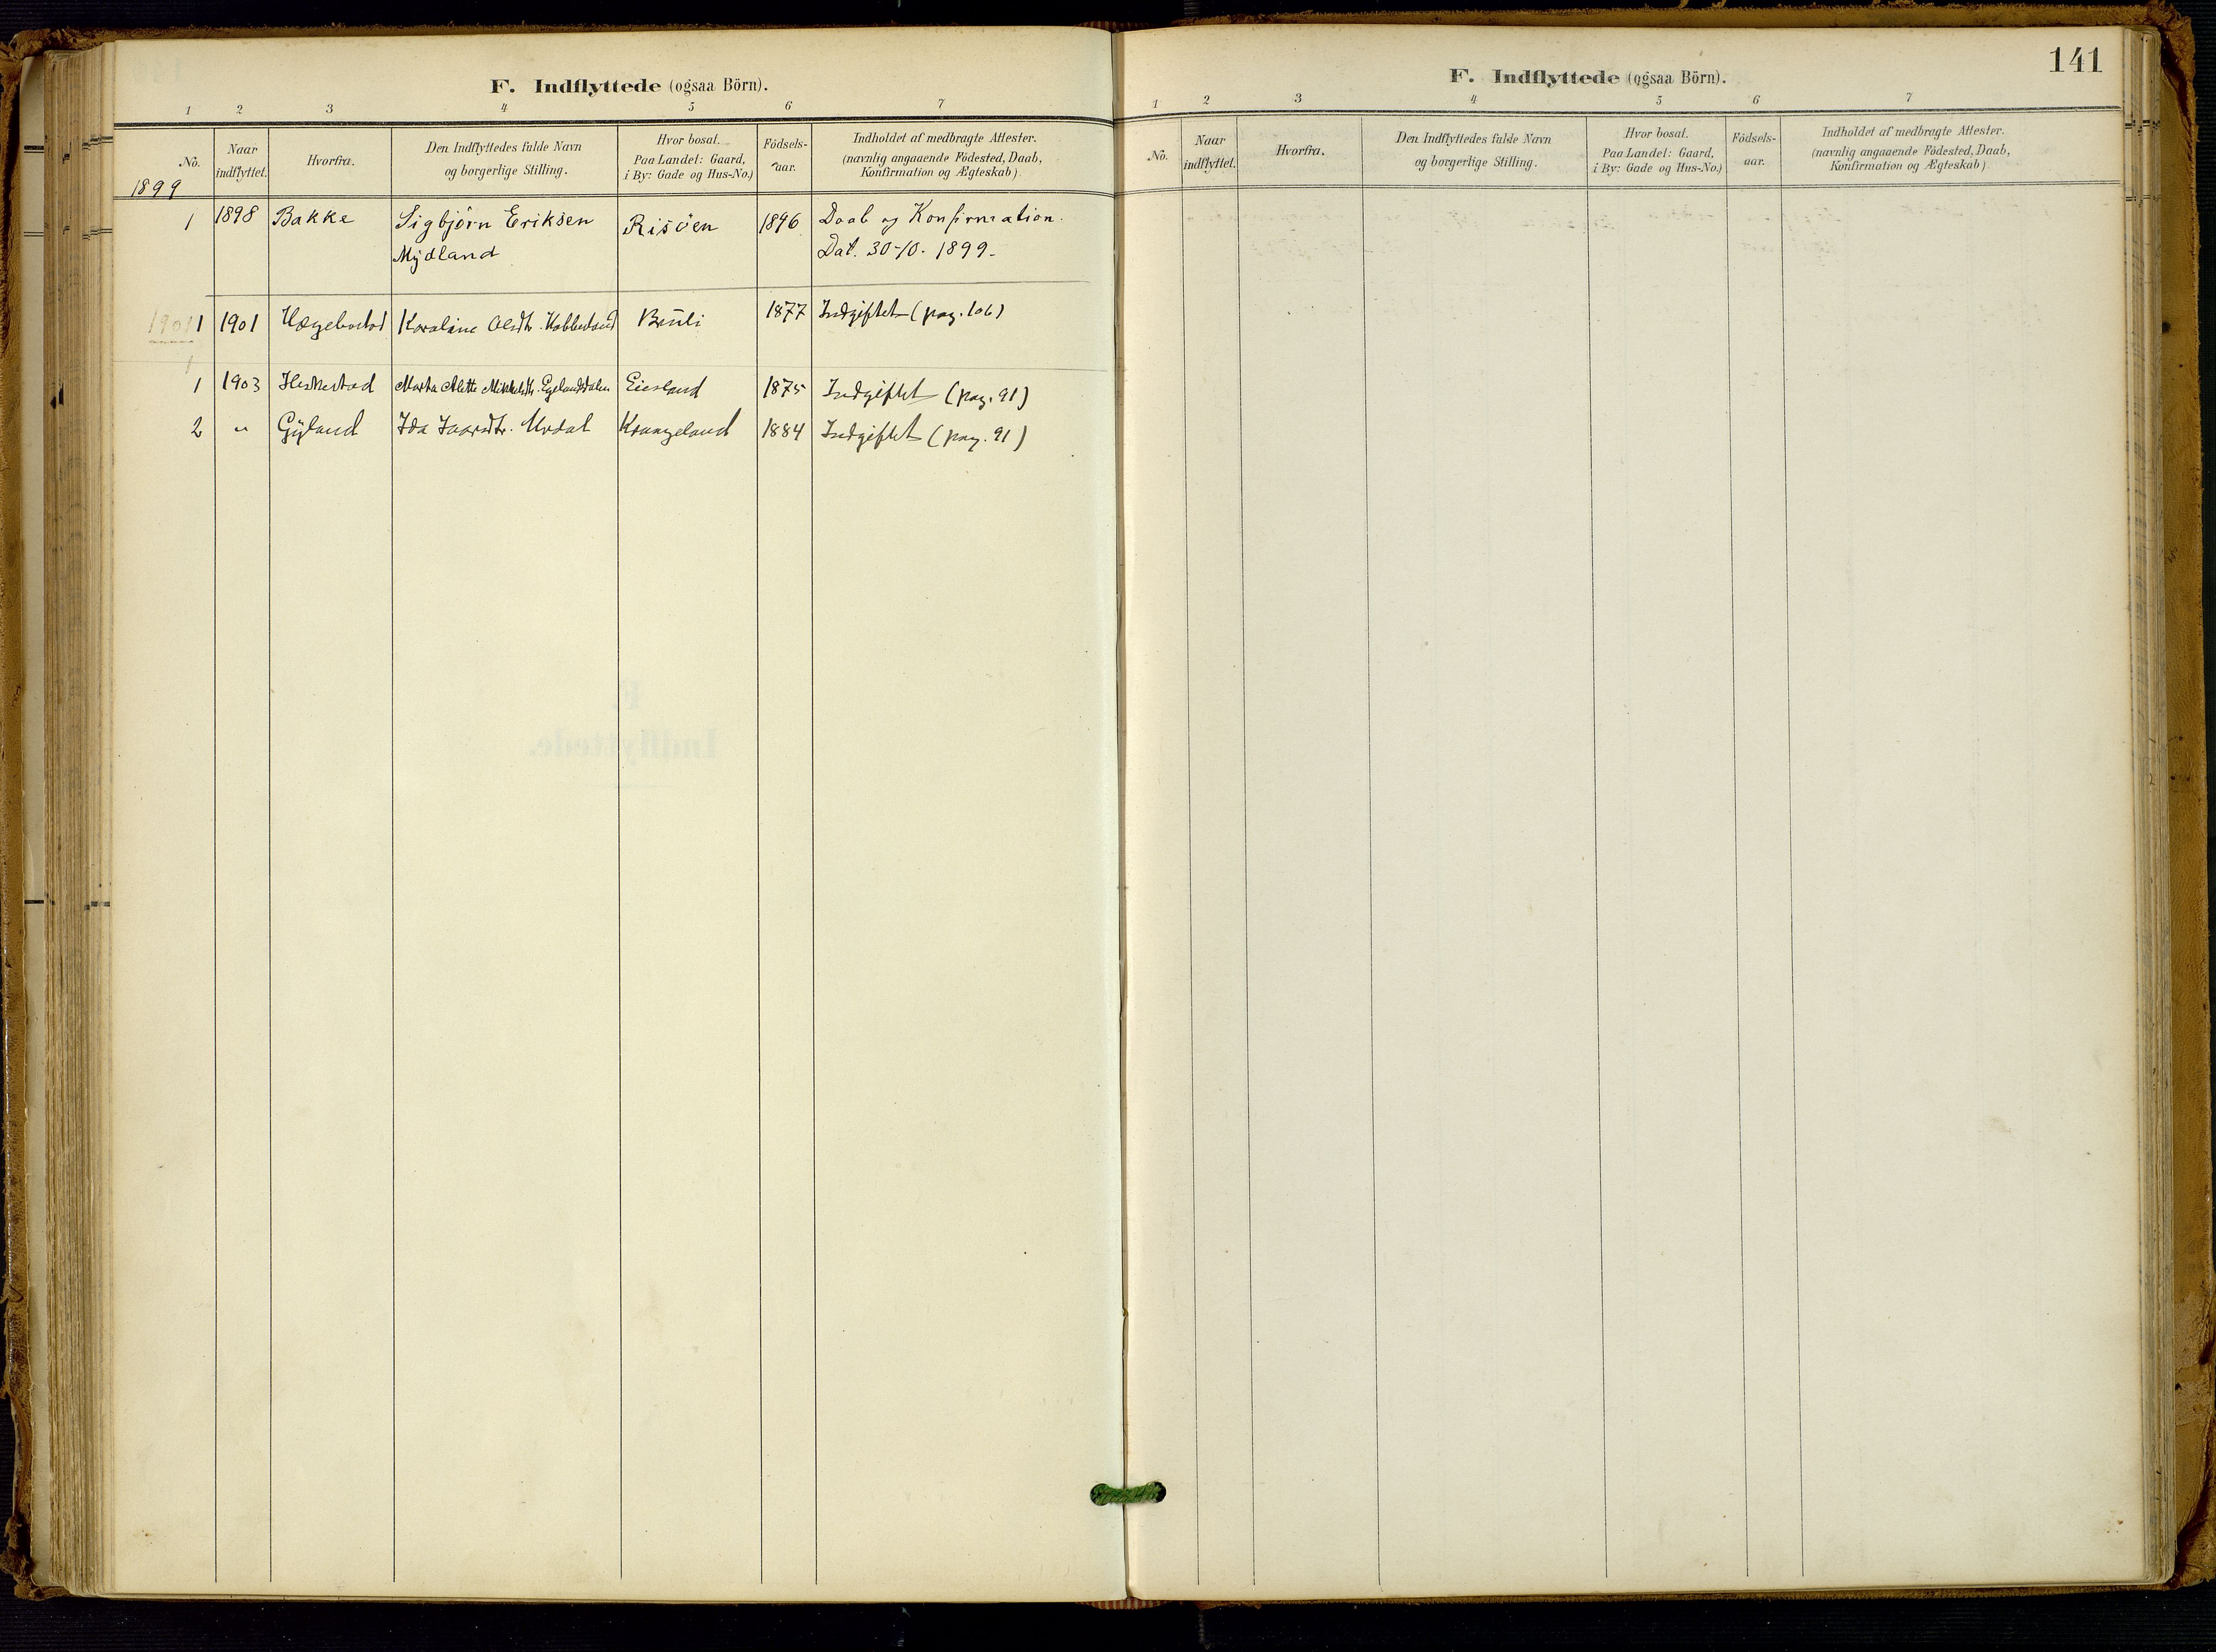 F. Indflyttede (ogsaa Börn).
1 2 3 4 5 6 7
No. Naar indflyttet. Hvorfra. Den Indflyttedes fulde Navn og borgerlige Stilling. Hvor bosat. Paa Landet: Gaard, i By: Gade og Hus-No.) Födsels-aar. Indholdet af medbragte Attester. (navnlig angaaende Födested, Daab, Konfirmation og Ægteskab)
1899
1 1898 Bakke Sigbjörn Eriksen Risöen 1896 Daab og Konfirmation.
Mydland Dat. 30-10. 1899.
1901 1 1901 Hægebostad Karoline Olsdtr. Bruli 1877 Indgiftet (pag. 106)
1
1 1903 Heskestad Marta Alette Mikkelsdtr. Egelandsdalen Eiesland 1875 Indgiftet (pag. 91)
2 " Gyland Ida Urdal Kvangeland 1884 Indgiftet (pag. 91)
141
F. Indflyttede (ogsaa Börn).
1 2 3 4 5 6 7
No. Naar indflyttet. Hvorfra. Den Indflyttedes fulde Navn og borgerlige Stilling. Hvor bosat. Paa Landet: Gaard, i By: Gade og Hus-No.) Födsels-aar. Indholdet af medbragte Attester. (navnlig angaaende Födested, Daab, Konfirmation og Ægteskab)